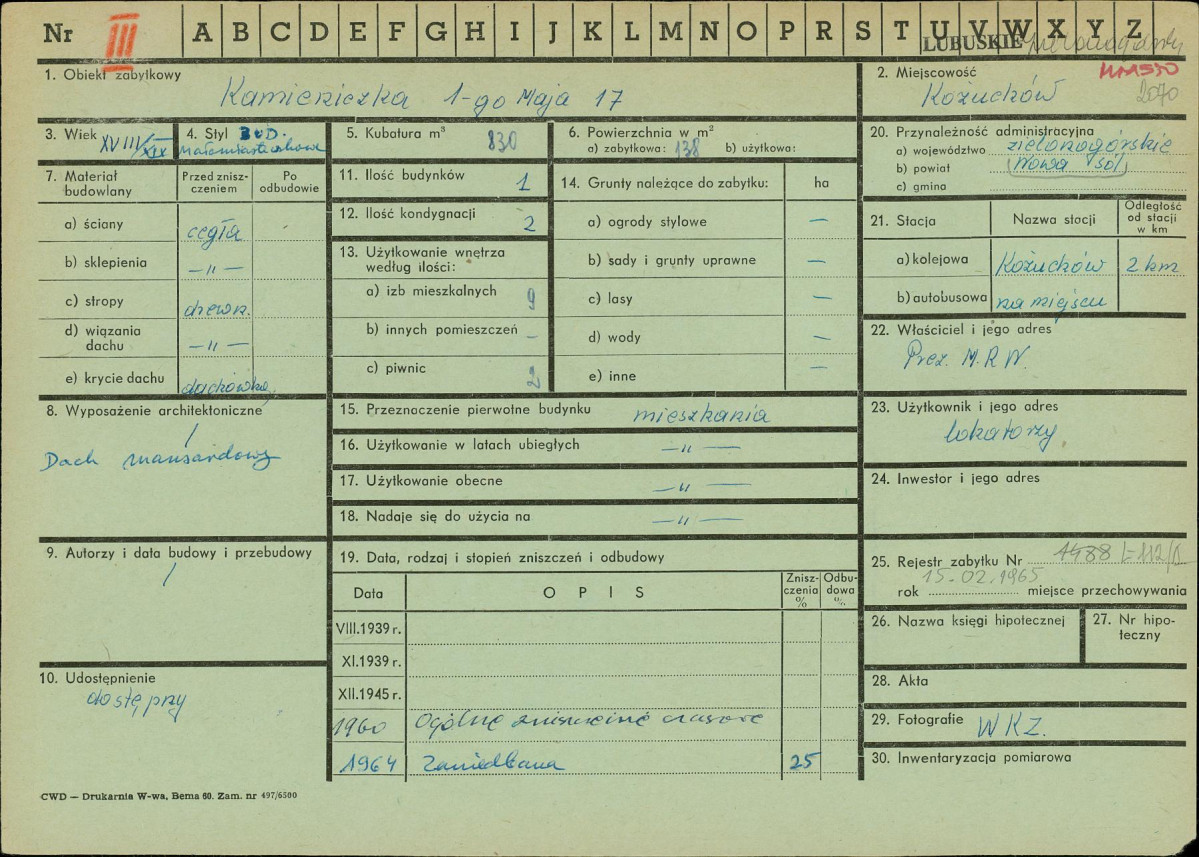 Nr III A B C D E F G H I J K L M N O P R S T U V W X Y Z
LUBUSKIE
1. Obiekt zabytkowy
Kamieniczka 1-go Maja 17
2. Miejscowość
MIASTO
Kożuchów
2070
3. Wiek XVIII/XIX
4. Styl BUD.
małomiasteczkowe
5. Kubatura m³ 830
6. Powierzchnia w m²
a) zabytkowa: 138 b) użytkowa:
7. Materiał budowlany
Przed zniszczeniem
Po odbudowie
a) ściany cegła
b) sklepienia —„—
c) stropy drewn.
d) wiązania dachu —„—
e) krycie dachu dachówka
8. Wyposażenie architektoniczne
/
Dach mansardowy
9. Autorzy i data budowy i przebudowy
/
10. Udostępnienie
dostępny
11. Ilość budynków 1
12. Ilość kondygnacji 2
13. Użytkowanie wnętrza
według ilości:
a) izb mieszkalnych 9
b) innych pomieszczeń –
c) piwnic 2
14. Grunty należące do zabytku: ha
a) ogrody stylowe —
b) sady i grunty uprawne —
c) lasy —
d) wody —
e) inne —
15. Przeznaczenie pierwotne budynku mieszkania
16. Użytkowanie w latach ubiegłych —„—
17. Użytkowanie obecne —„—
18. Nadaje się do użycia na —„—
19. Data, rodzaj i stopień zniszczeń i odbudowy
Data OPIS Zniszczenia % Odbudowa %
VIII.1939 r.
XI.1939 r.
XII.1945 r.
1960 Ogólne zniszczenie czasowe
1964 Zaniedbana 25
20. Przynależność administracyjna
a) województwo zielonogórskie
b) powiat Nowa Sól
c) gmina
21. Stacja Nazwa stacji Odległość od stacji w km
a) kolejowa Kożuchów 2 km
b) autobusowa na miejscu
22. Właściciel i jego adres
Prez. M.R.N.
23. Użytkownik i jego adres
lokatorzy
24. Inwestor i jego adres
25. Rejestr zabytku Nr 1488
15.02.1965
rok miejsce przechowywania
26. Nazwa księgi hipotecznej
27. Nr hipoteczny
28. Akta
29. Fotografie WKZ.
30. Inwentaryzacja pomiarowa
CWD — Drukarnia W-wa, Bema 60. Zam. nr 497/6500